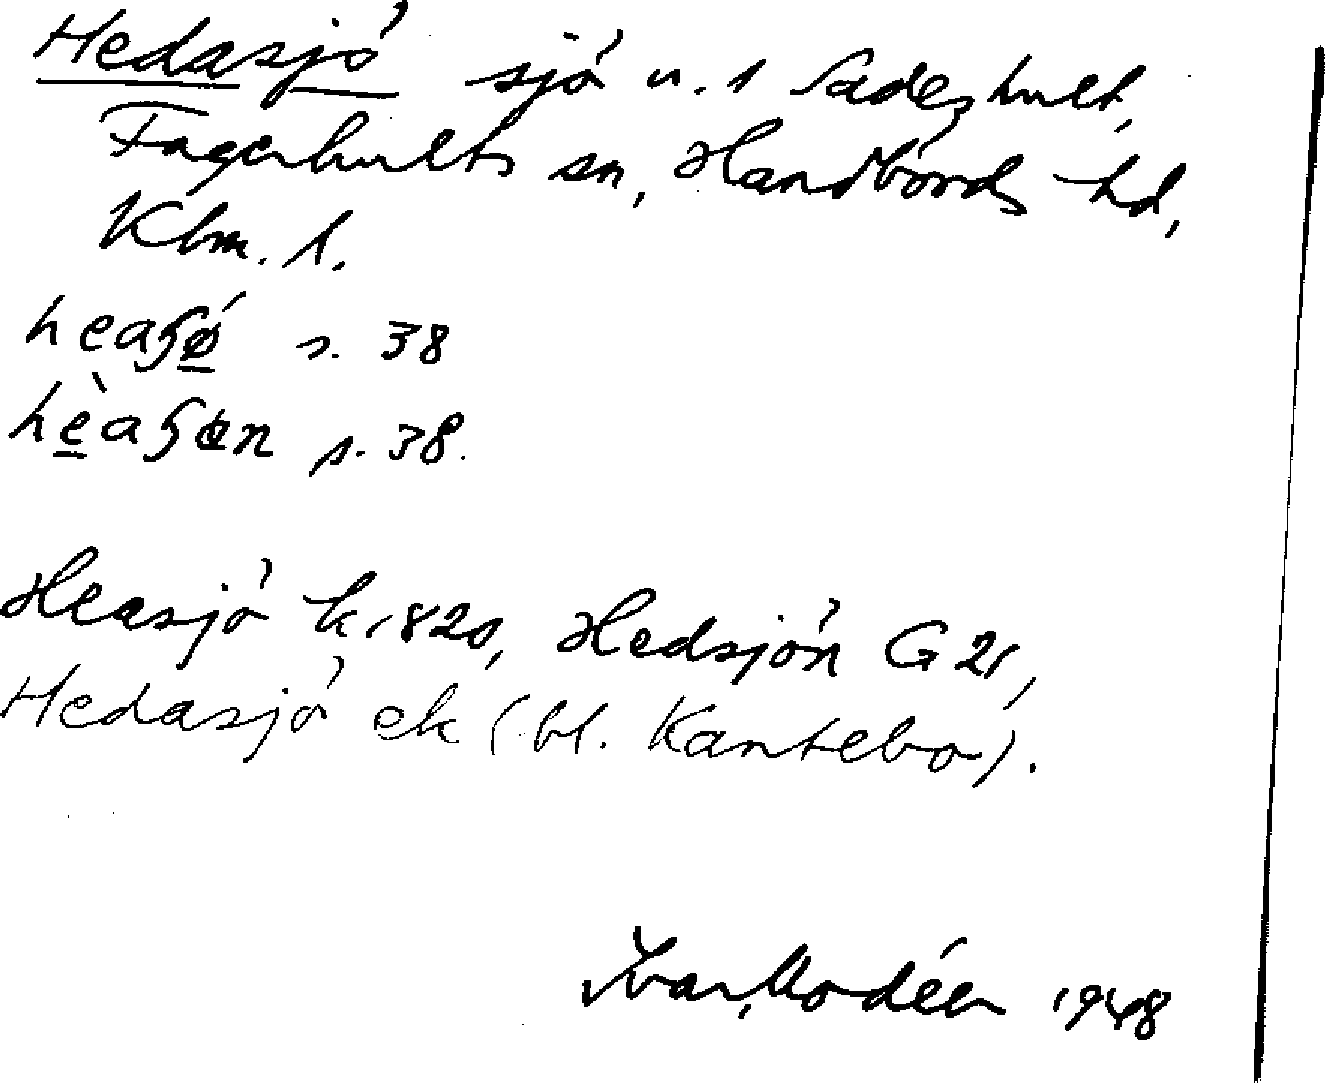 Hedasjö sjö u. 1 Sadeshult,
Fagerhults sn, Handbörds hd,
Klm. l.
heaʂø s. 38
hèaʂøn s. 38.
Heasjö k. 1820, Hedsjön G 21,
Hedasjö ek (bl. Kantebo).
Ivar Modéer 1948